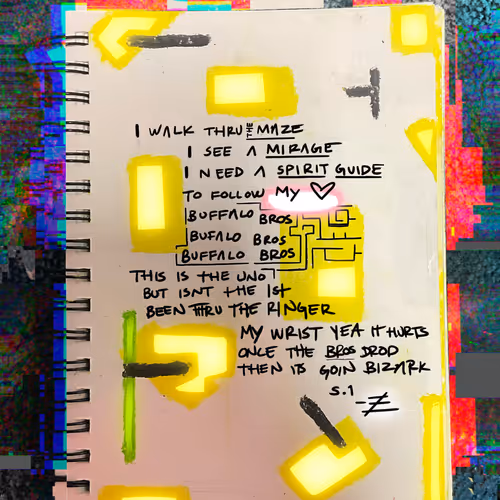 I WALK THRU THE MAZE
I SEE A MIRAGE
I NEED A SPIRIT GUIDE
TO FOLLOW MY ♡
BUFFALO BROS
BUFALO BROS
BUFFALO BROS
THIS IS THE UNO
BUT ISNT THE 1st
BEEN THRU THE RINGER
MY WRIST YEA IT HURTS
ONCE THE BROS DROD
THEN IS GOIN BIZARK
S.1
-Z